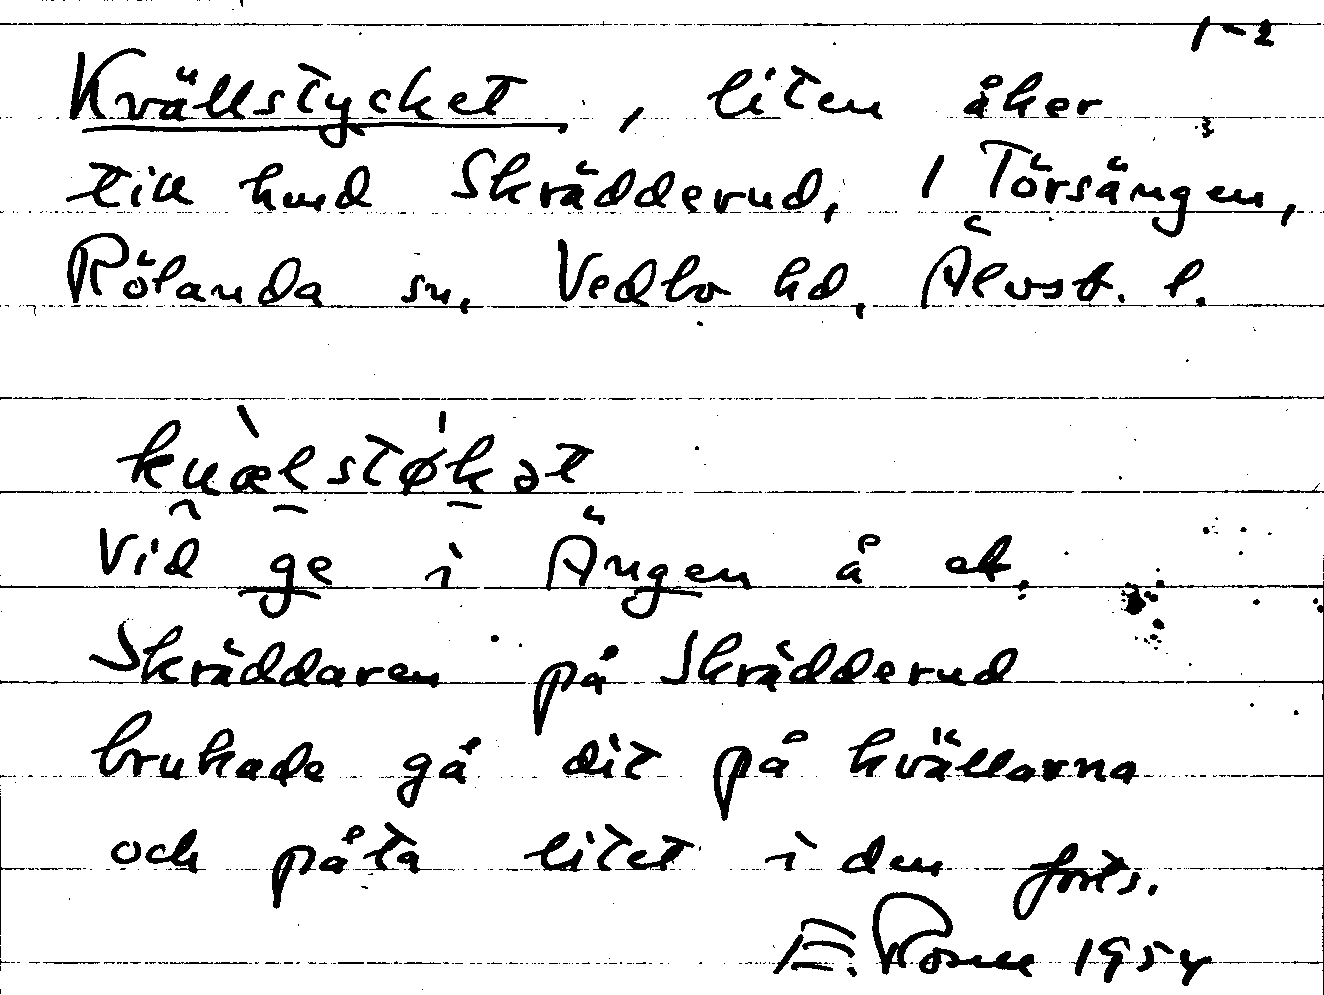 1-2
Kvällstycket, liten åker
till hmd Skrädderud, 1 Törsängen,
Rölanda sn, Vedbo hd, Älvsb. l.
kuæ̀lstø̍kət
Vid ge i Ängen å et.
Skräddaren på Skrädderud
brukade gå dit på kvällarna
och påta litet i den forts.
E. 1954